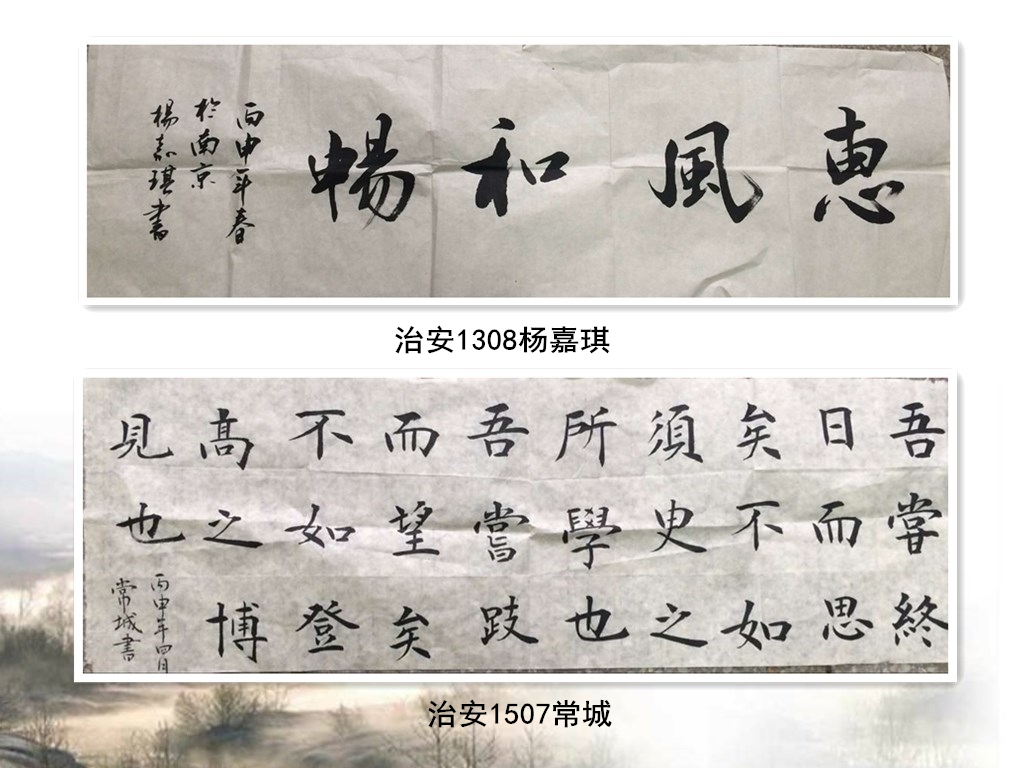 惠風和暢
丙申年春
於南京
楊嘉琪書
治安1308杨嘉琪
吾嘗終
日而思
矣不如
須臾之
所學也
吾嘗跂
而望矣
不如登
髙之博
見也
丙申年四月
常城書
治安1507常城